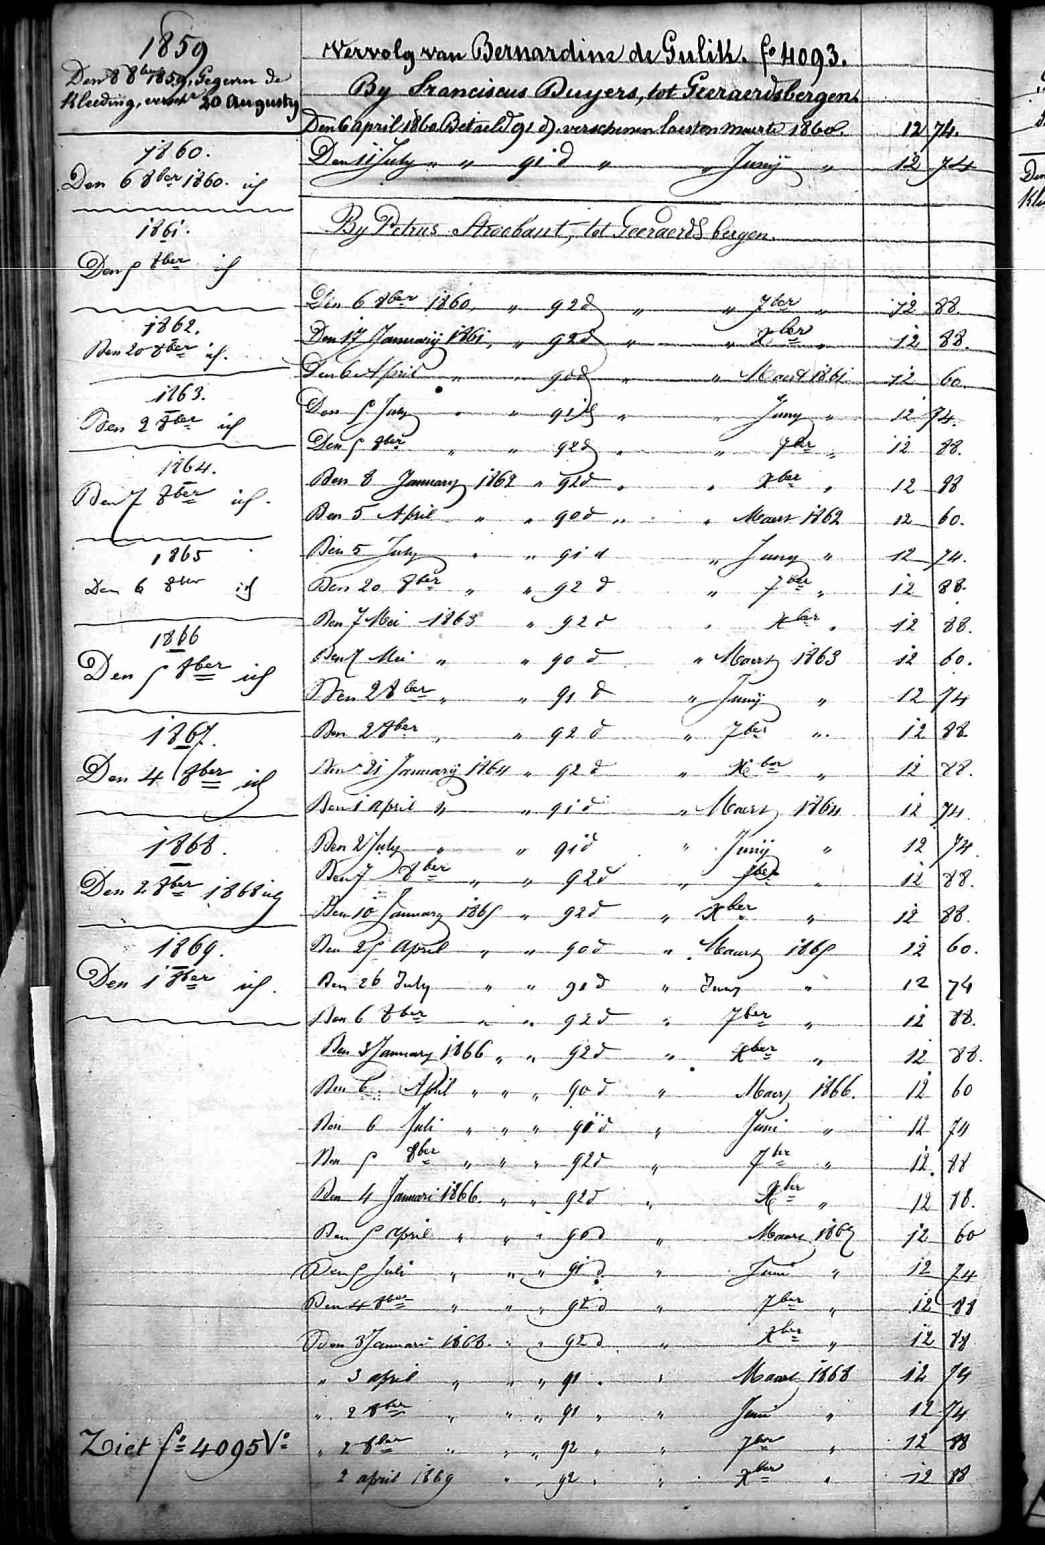 1859
Den 8 8ber 1859, Gegeven de
Kleeding, 20 Augusty
1860.
Den 6 8ber 1860. id
1861.
Den 5 8ber id
1862.
Den 20 8ber id.
1863.
Den 2 8ber id
1864.
Den 7 8ber id.
1865
Den 6 8ber id
1866
Den 5 8ber id
1867.
Den 4 8ber id
1868.
Den 2 8ber 1868 id
1869.
Den 1 8ber id.
Ziet fo 4095 Vo
Vervolg van Bernardine de Gulik. fo 4093.
By Franciscus Buyers, tot Geeraerdsbergen.
Den 6 april 1860 Betaeld 91 d. verschenen laesten maerte 1860. 12 74.
Den 11 July " " 91 d " " Junij " 12 74
By Petrus Stroobant, tot Geeraerdsbergen.
Den 6 8ber 1860, " 92 d " " 7ber " 12 88.
Den 17 Januarij 1861, " 92 d " " Xber " 12 88.
Den 6 April " " 90 d " " Maert 1861 12 60
Den 5 July " " 91 d " " Juny " 12 74.
Den 5 8ber " " 92 d " " 7ber " 12 88.
Den 8 January 1862 " 92 d " " Xber " 12 88
Den 5 April " " 90 d " " Maert 1862 12 60.
Den 5 July " " 91 d " Juny " 12 74.
Den 20 8ber " " 92 d " 7ber " 12 88.
Den 7 Mei 1863 " 92 d " Xber " 12 88.
Den 7 Mei " " 90 d " Maert 1863 12 60.
Den 2 8ber " " 91 d " Junij " 12 74
Den 2 8ber " " 92 d " 7ber " 12 88
Den 21 Januarij 1864 " 92 d " Xber " 12 88.
Den 1 April " " 91 d " Maert 1864 12 74.
Den 2 July " " 91 d " Junij " 12 74.
Den 7 8ber " " 92 d " 7ber " 12 88.
Den 10 January 1865 " 92 d " Xber " 12 88.
Den 25 April " " 90 d " Maert 1865 12 60.
Den 26 July " " 91 d " Juny " 12 74
Den 6 8ber " " 92 d " 7ber " 12 88.
Den 3 January 1866 " " 92 d " Xber " 12 88.
Den 6 April " " " 90 d " Maert 1866. 12 60
Den 6 Juli " " " 91 d " Juni " 12 74
Den 5 8ber " " " 92 d " 7br " 12 88
Den 4 Januari 1866. " " 92 d " Xbr " 12 88.
Den 5 April " " " 90 d " Maart 1867 12 60
Den 5 Juli " " " 91 d. " Juni " 12 74
Den 4 8ber " " " 92 d " 7ber " 12 88
Den 3 Januari 1868. " " 92 d " Xber " 12 88
" 3 april " " " 91 " " Maart 1868 12 74
" 2 8ber " " " 91 " " Juni " 12 74
" 2 8ber " " " 92 " " 7ber " 12 88
2 april 1869 " 92 " " Xber " 12 88